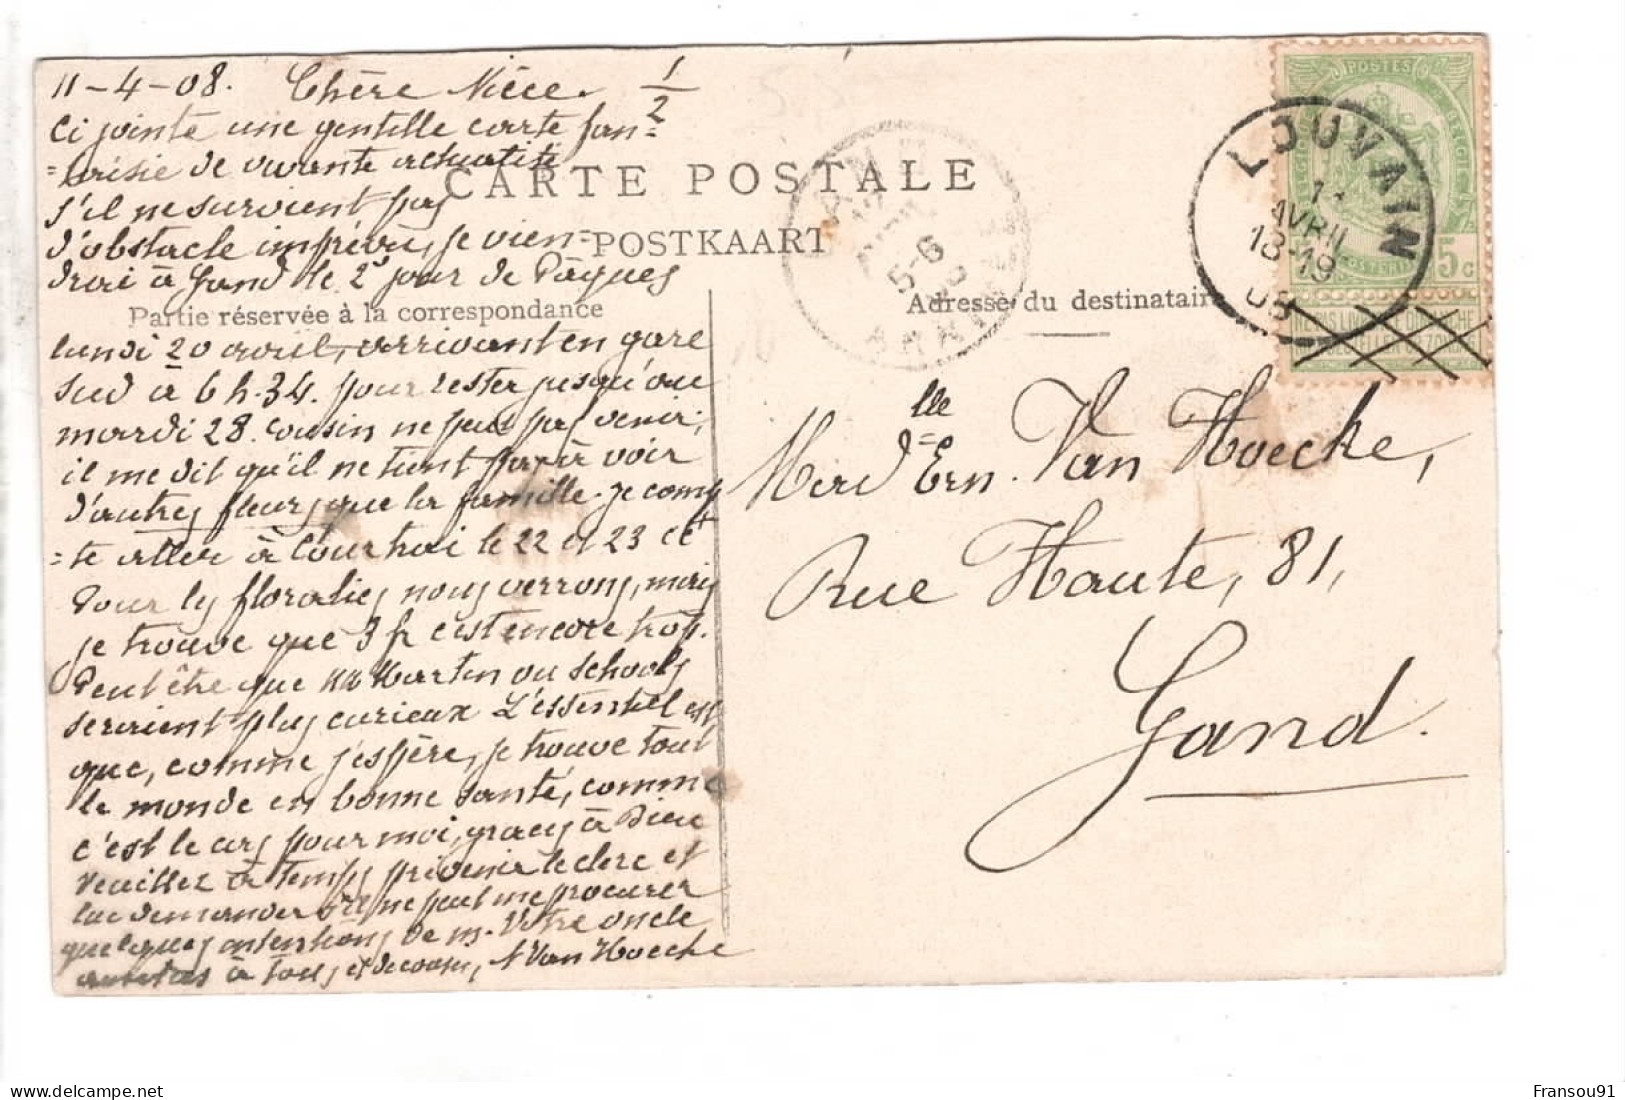 11-4-08. Chère Nièce. 1/2
Ci jointe une gentille carte fan=
=taisie de vivante actualité
CARTE POSTALE
s'il ne survient pas
d'obstacle imprévu, je vien=
POSTKAART
drai à Gand le 2d jour de Pâques
Partie réservée à la correspondance
lundi 20 avril, arrivant en gare
sud à 6 h. 34. pour rester jusqu'au
mardi 28. cousin ne peut pas venir,
il me dit qu'il ne tient pas à voir
d'autres fleurs que la famille. je comp
=te aller à Courtrai le 22 et 23 ct
Pour les floralies nous verrons, mais
je trouve que 3 fr c'est encore trop.
Peut être que Martin ou Schools
seraient plus curieux L'essentiel est
que, comme j'espère, je trouve tout
le monde en bonne santé, comme
c'est le cas pour moi, graces à Dieu
Veuillez à temps prévenir le clerc et
lui demander s'il ne peut me procurer
quelques intentions de m. Votre oncle
à tous et de cousin, A Van Hoecke
Adresse du destinataire
Melle Ern. Van Hoecke,
Rue Haute, 81,
Gand.
LOUVAIN
AVRIL
18-19
08
5-6
POSTES
5c
Fransou91